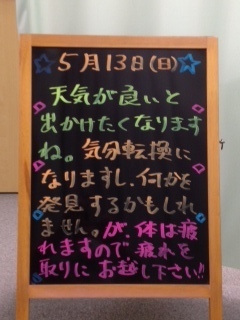 5月13日(日)
天気が良いと
出かけたくなります
ね。気分転換に
なりますし、何かを
発見するかもしれ
ません。が、体は疲
れますので、疲れを
取りに お越し下さい!!